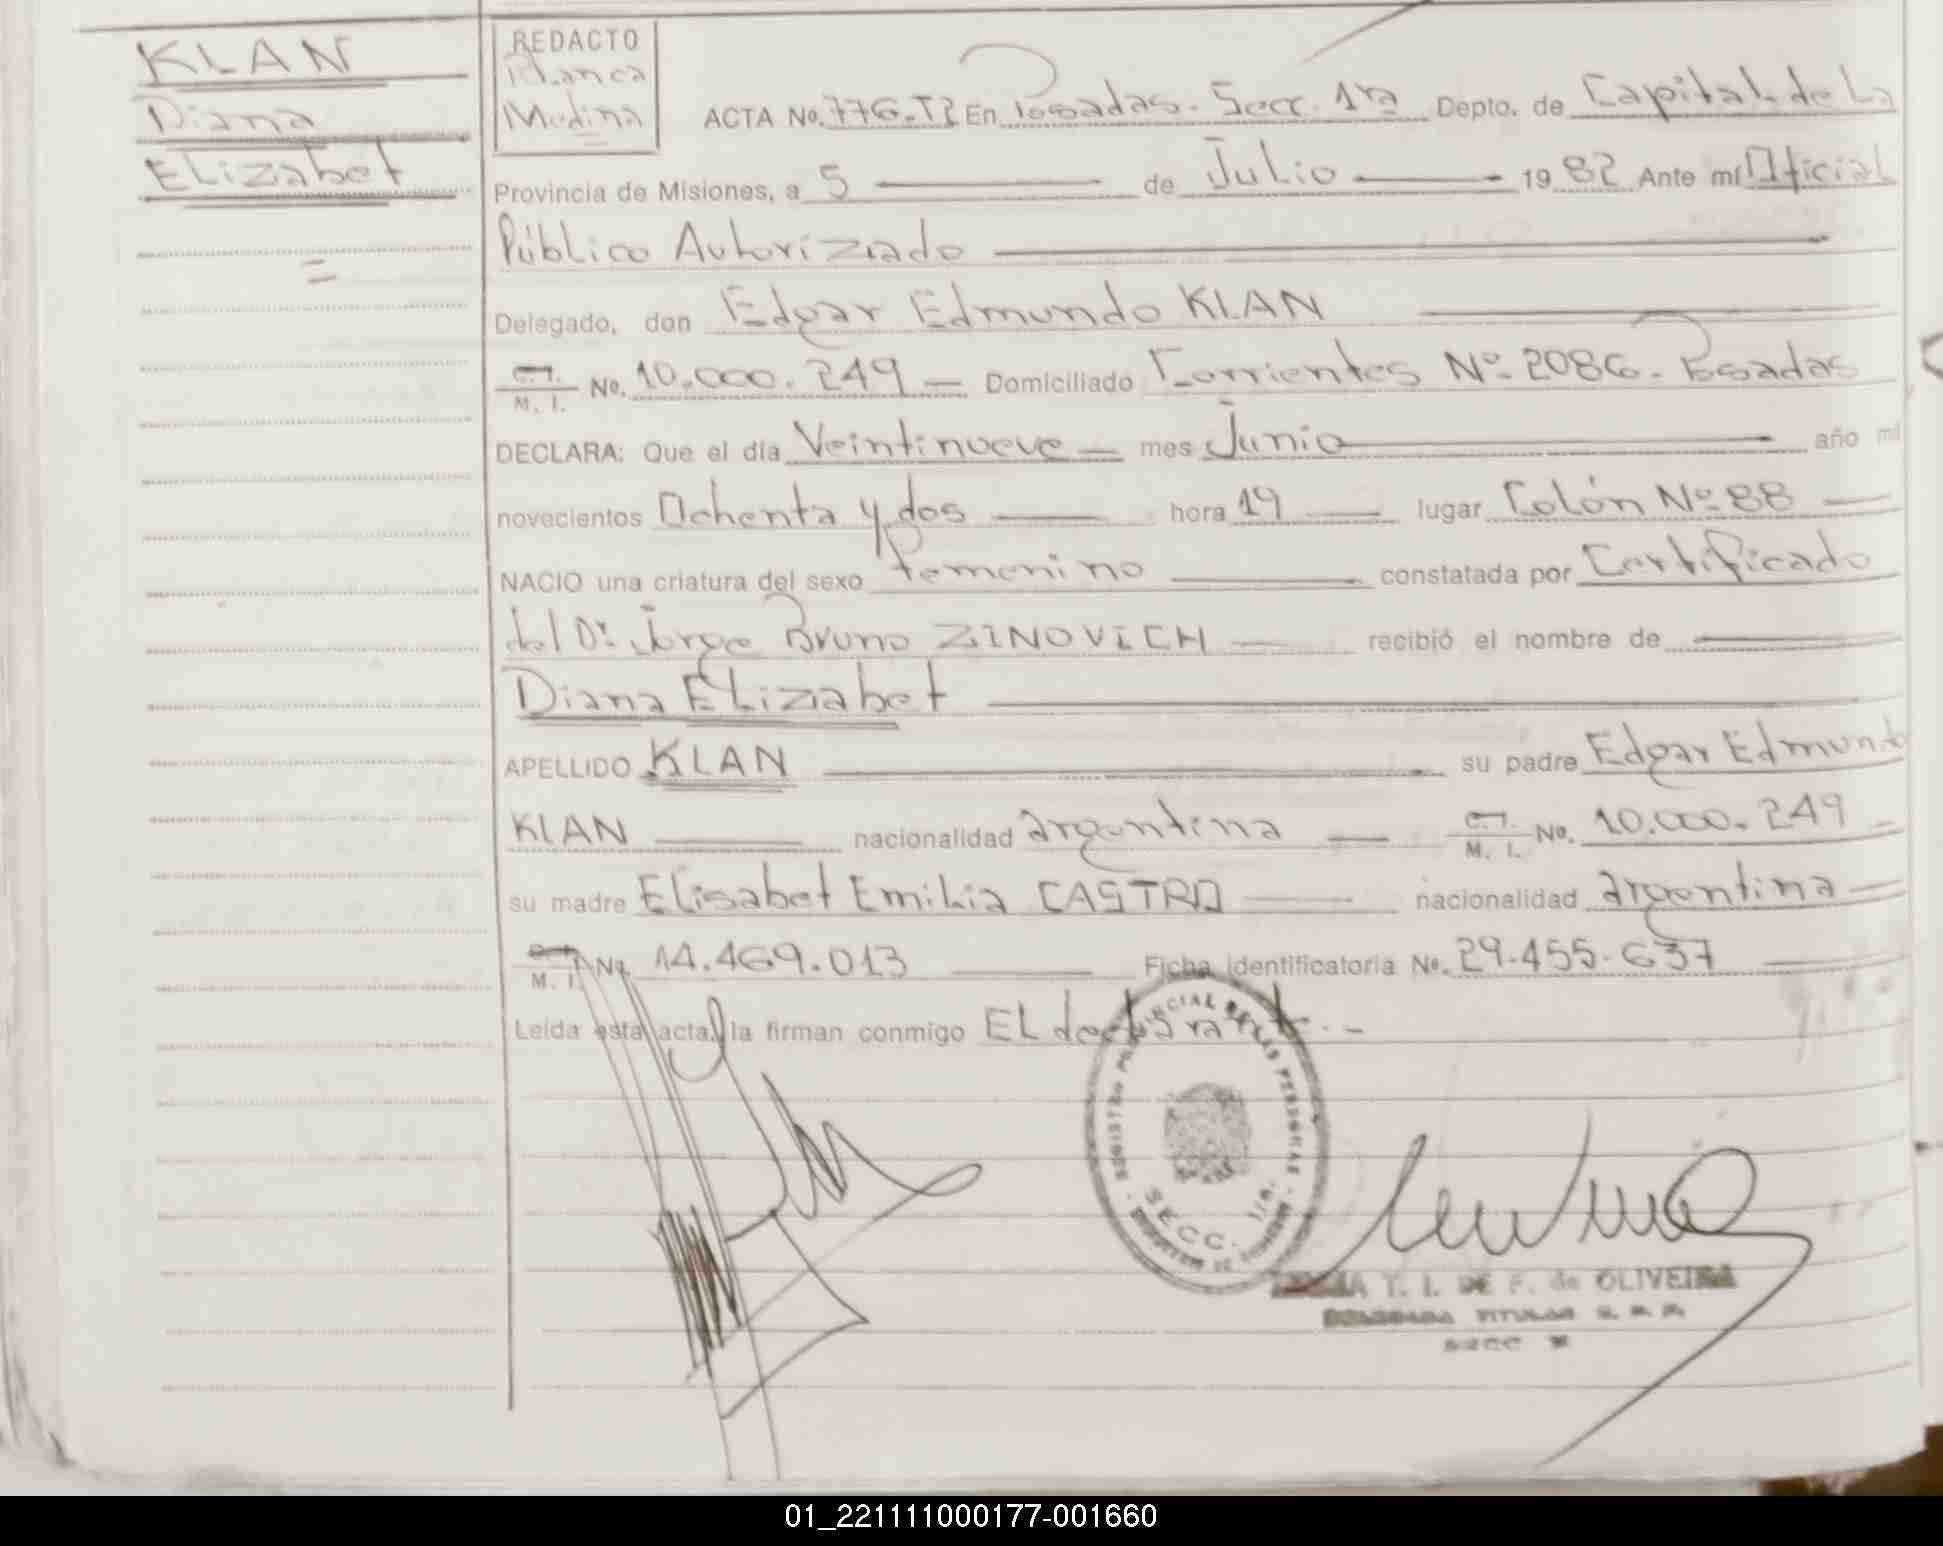 KLAN
Diana
Elizabet
REDACTO
Blanca
Medina
ACTA No. 776.T2 En Posadas. Secc. 1ra Depto. de Capital de La
Provincia de Misiones, a 5 de Julio 1982 Ante mí Oficial
Público Autorizado
Delegado, don Edgar Edmundo KLAN
C.I. M. I. No. 10.000.249 Domiciliado Corrientes Nº 2086. Posadas
DECLARA: Que el día Veintinueve mes Junio año mil
novecientos Ochenta y dos hora 19 lugar Colón Nº 88
NACIO una criatura del sexo femenino constatada por Certificado
del Dr. Jorge Bruno ZINOVICH recibió el nombre de
Diana Elizabet
APELLIDO KLAN su padre Edgar Edmundo
KLAN nacionalidad argentina C.I. M. I. No. 10.000.249
su madre Elisabet Emilia CASTRO nacionalidad argentina
C.I. M. I. No. 14.469.013 Ficha identificatoria No. 29.455.637
Leída esta acta, la firman conmigo El declarante.-
REGISTRO PROVINCIAL DE LAS PERSONAS
SECC. 1ra.
Y. I. DE F. de OLIVEIRA
DELEGADA TITULAR R. P. P.
SECC
01_221111000177-001660